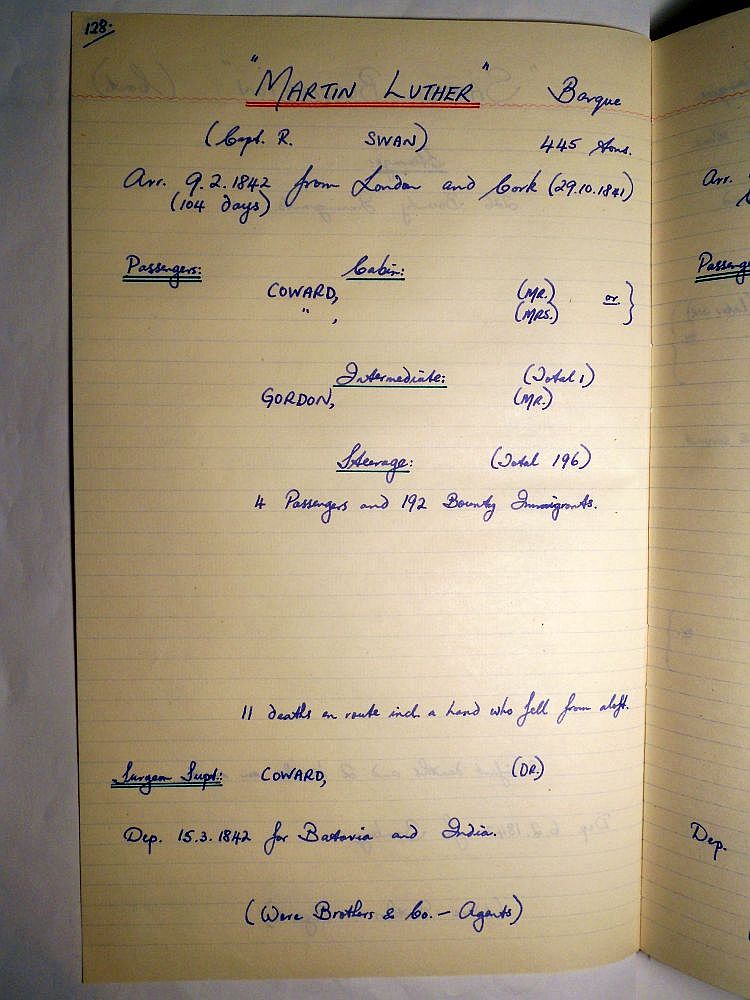 128.
"MARTIN LUTHER" Barque
(Capt. R. SWAN) 445 tons.
Arr. 9.2.1842 from London and Cork (29.10.1841)
(104 days)
Passengers: Cabin:
COWARD, (MR.) or }
" , (MRS.)
Intermediate: (Total 1)
GORDON, (MR.)
Steerage: (Total 196)
4 Passengers and 192 Bounty Immigrants.
11 deaths en route incl. a hand who fell from aloft.
Surgeon Supt: COWARD, (DR.)
Dep. 15.3.1842 for Batavia and India.
(Were Brothers & Co. - Agents)
Arr.
Passenge
Dep.